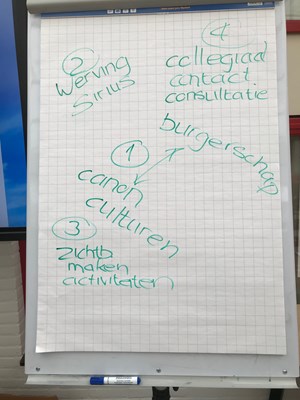 ②
werving
Sirius
④
collegiaal
contact
consultatie
①
burgerschap
canon
culturen
③
zichtb
maken
activiteiten